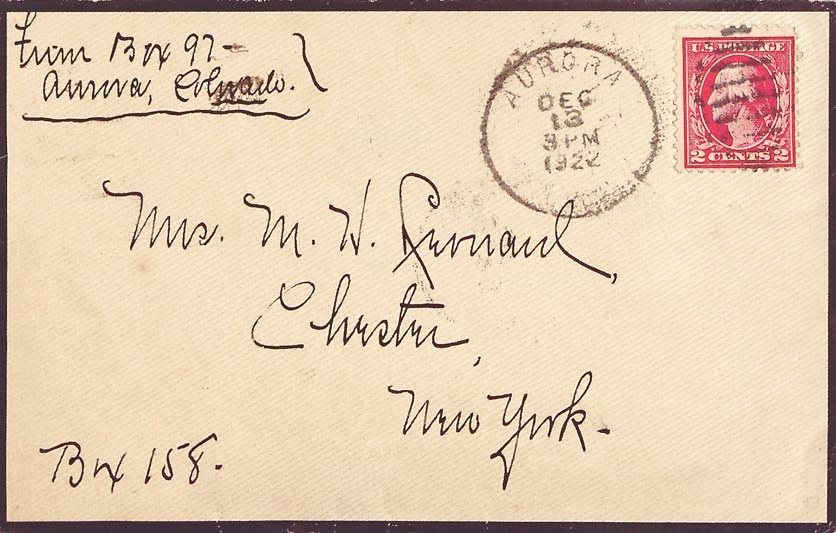 From Box 97-
Aurora, Colorado.
AURORA
DEC
13
3 PM
1922
U.S. POSTAGE
2 CENTS 2
Mrs. M. W. Leonard,
Chester,
New York.
Box 158.